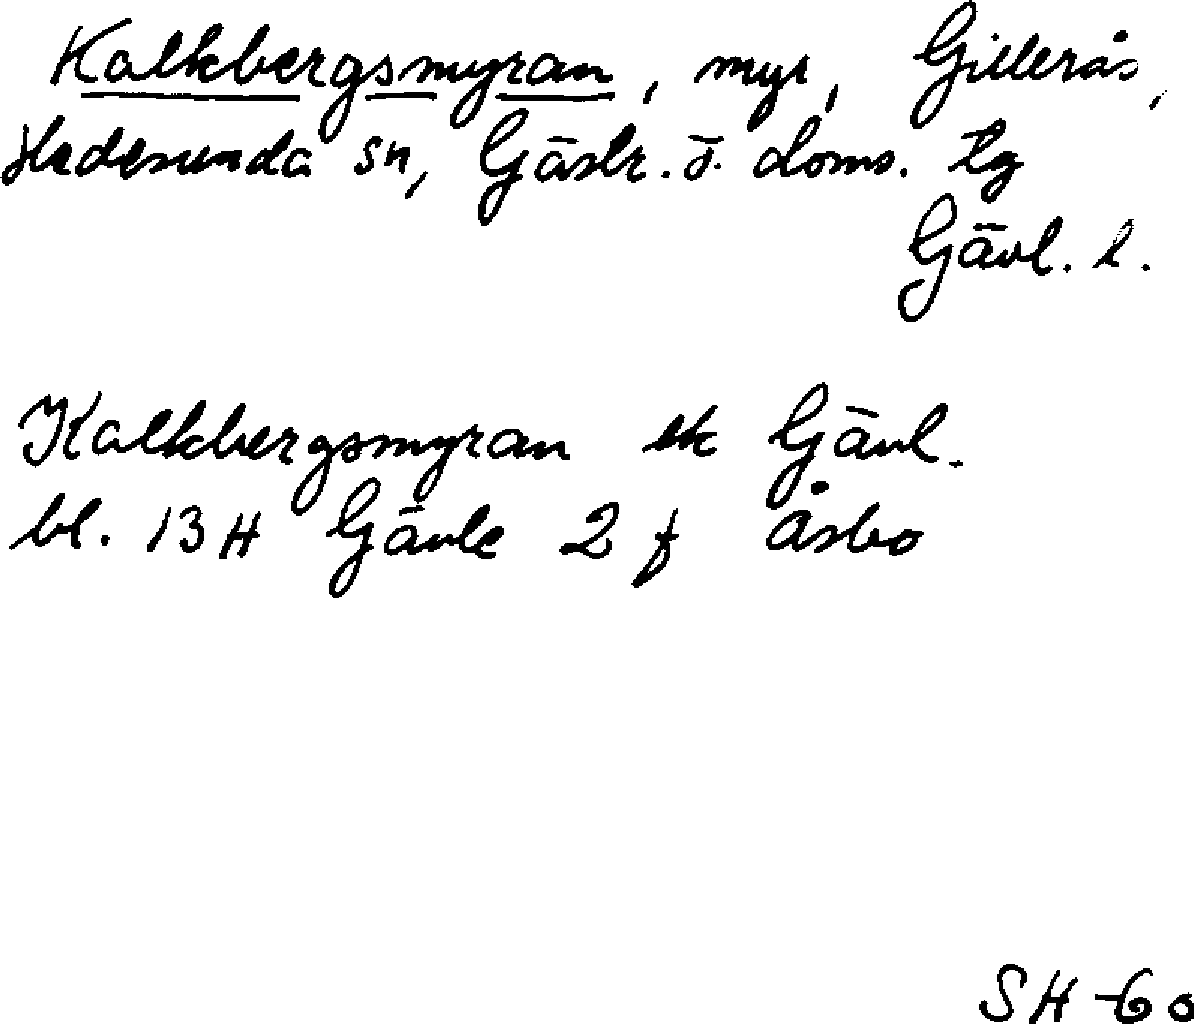 Kalkbergsmyran, myr, Gillerås,
Hedesunda sn, Gästr. ö. doms. tg
Gävl. l.
Kalkbergsmyran ek Gävl.
bl. 13H Gävle 2 f Åsbo
SH -60